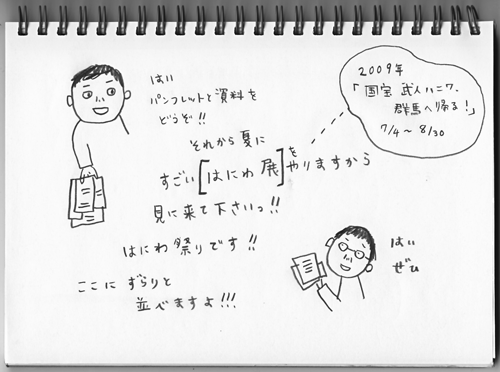 はい
パンフレットと資料を
どうぞ!!
それから夏に
すごい[はにわ展]を
やりますから
見に来て下さいっ!!
はにわ祭りです!!
ここに ずらりと
並べますよ!!!
2009年
「国宝 武人ハニワ、
群馬へ帰る!」
7/4～8/30
はい
ぜひ